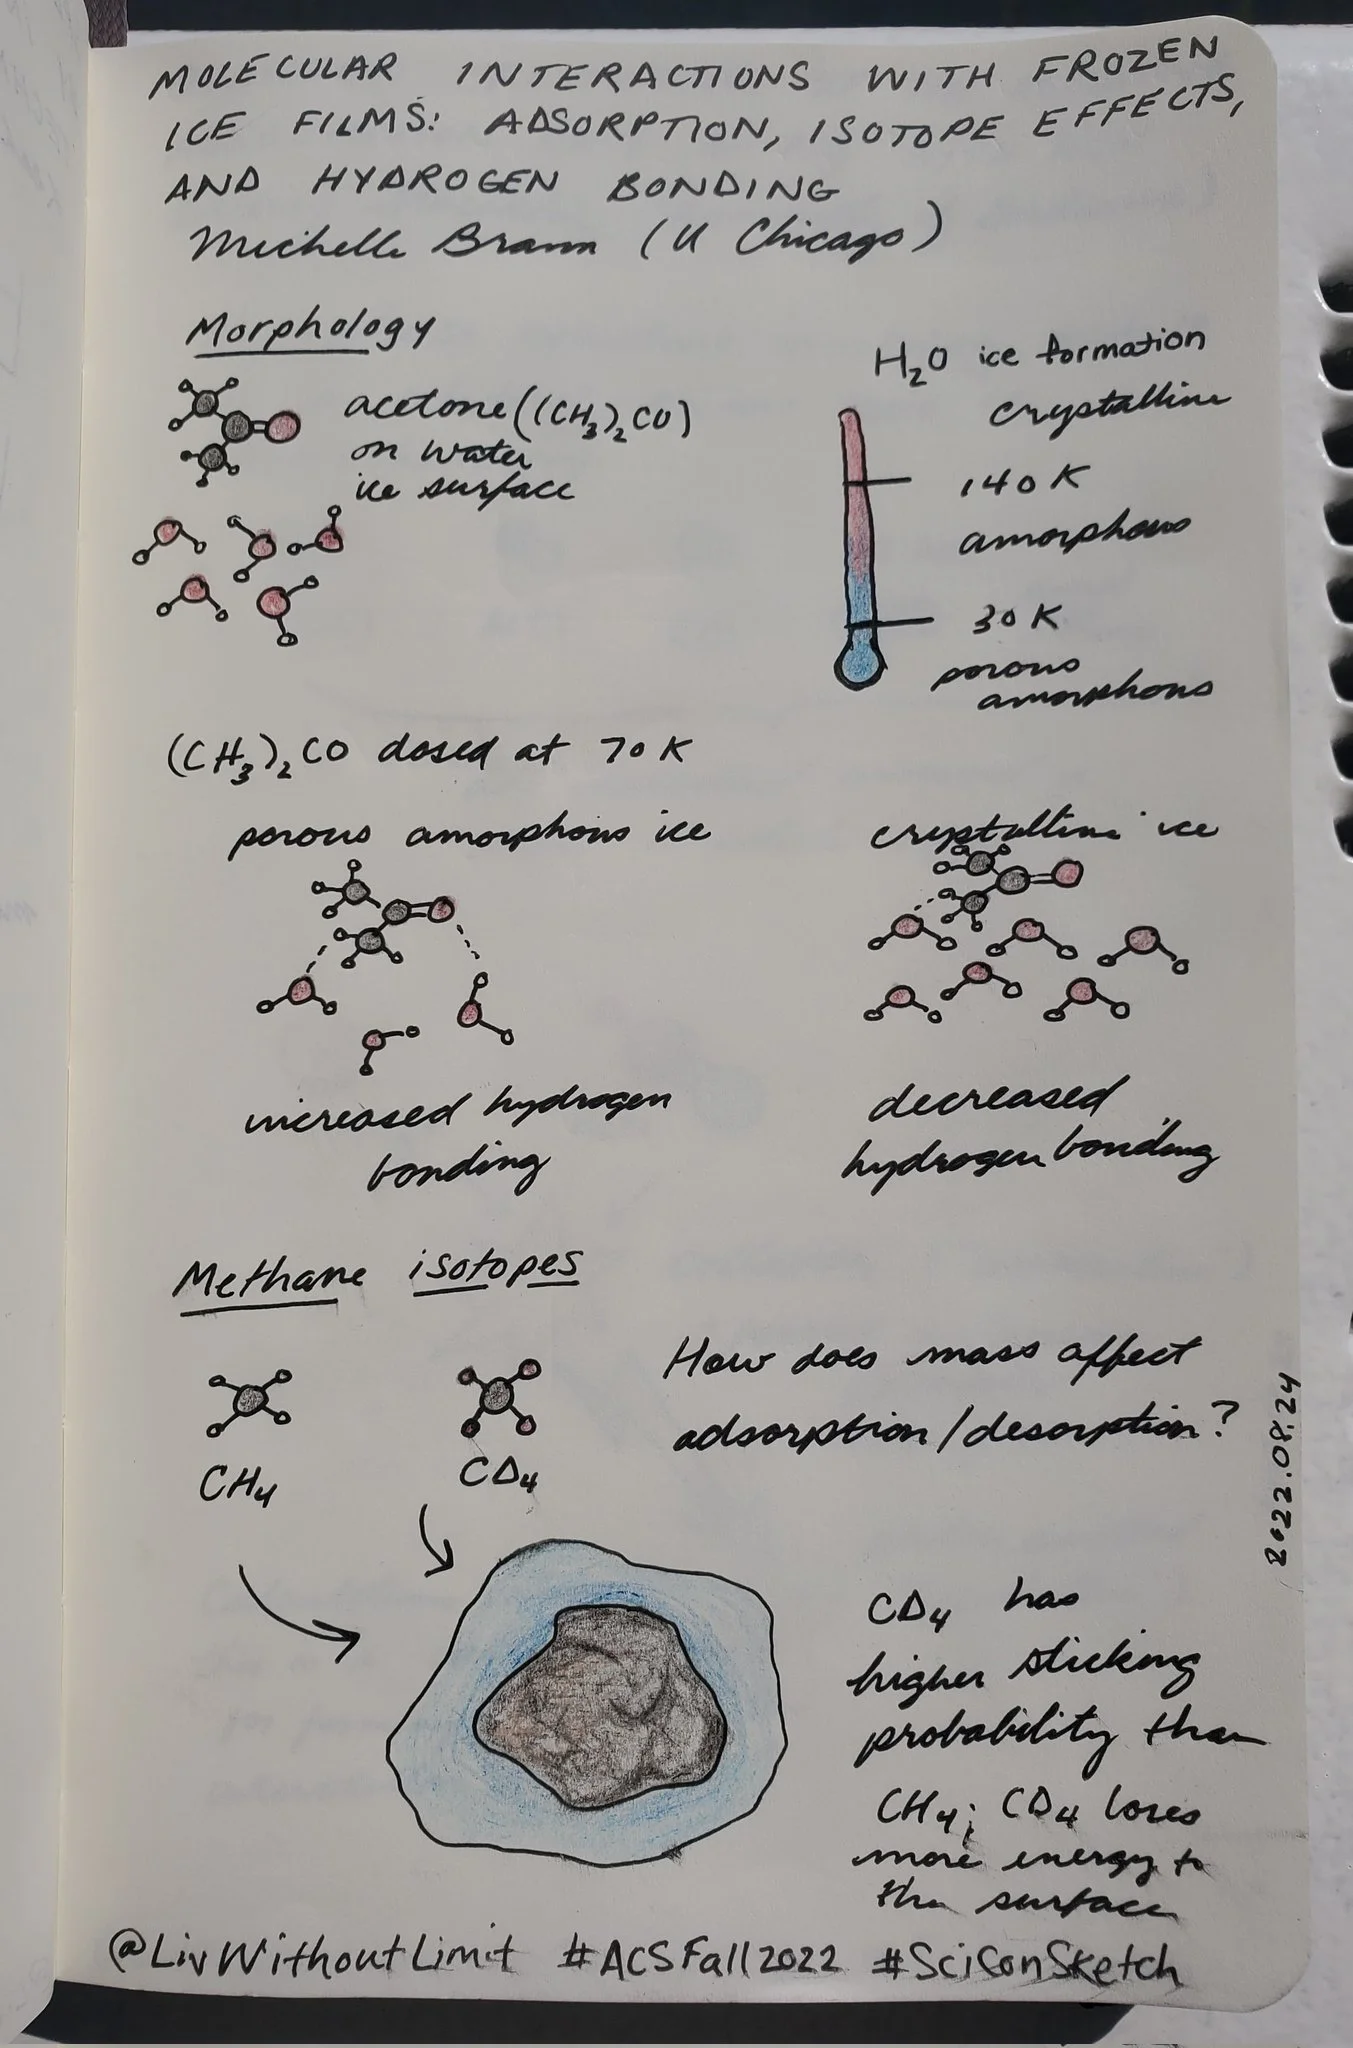 MOLECULAR INTERACTIONS WITH FROZEN
ICE FILMS: ADSORPTION, ISOTOPE EFFECTS,
AND HYDROGEN BONDING
Michelle Brann (U Chicago)
Morphology
acetone ((CH₃)₂CO)
on water
ice surface
H₂O ice formation
crystalline
140 K
amorphous
30 K
porous
amorphous
(CH₃)₂CO dosed at 70 K
porous amorphous ice
increased hydrogen
bonding
crystalline ice
decreased
hydrogen bonding
Methane isotopes
CH₄
CD₄
How does mass affect
adsorption/desorption?
2022.08.24
CD₄ has
higher sticking
probability than
CH₄; CD₄ loses
more energy to
the surface
@LivWithoutLimit #ACSFall2022 #SciConSketch